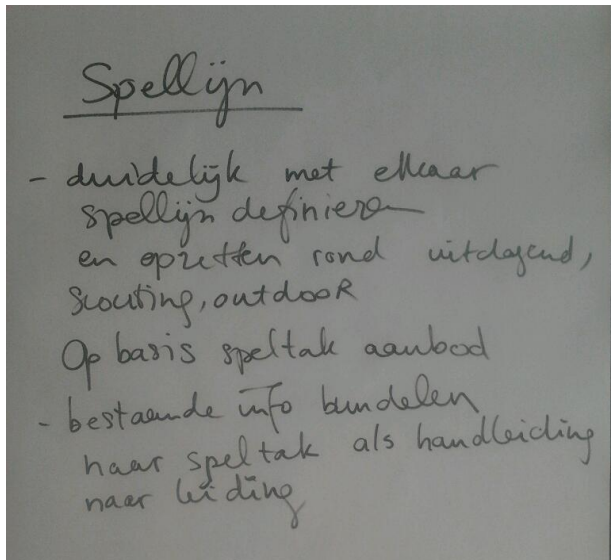 Spellijn
- duidelijk met elkaar
spellijn definieren
en opzetten rond uitdagend,
scouting, outdooR
Op basis speltak aanbod
- bestaande info bundelen
naar speltak als handleiding
naar leiding